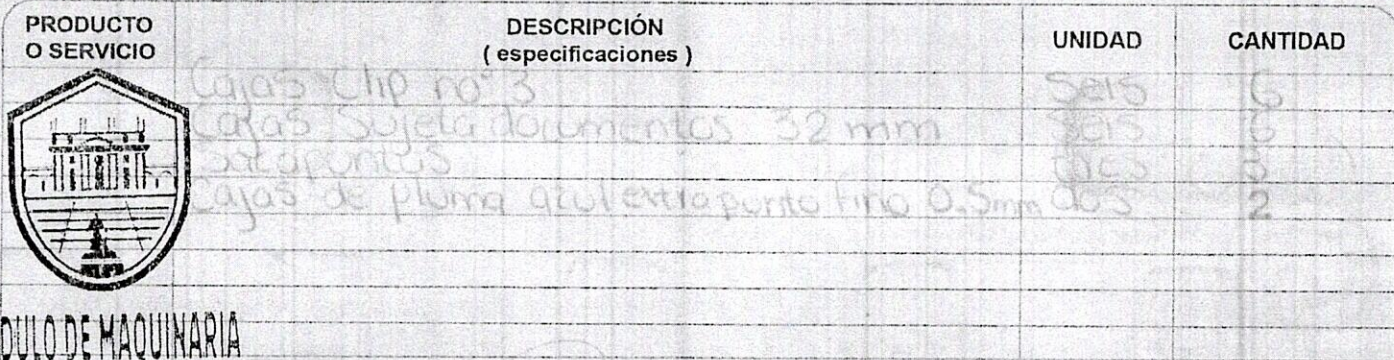 PRODUCTO O SERVICIO DESCRIPCIÓN ( especificaciones ) UNIDAD CANTIDAD
Cajas Clip no° 3 Seis 6
Cajas Sujeta documentos 32 mm Seis 6
Sacapuntas tres 3
Cajas de pluma azul extra punto fino 0.5mm dos 2
DULO DE MAQUINARIA